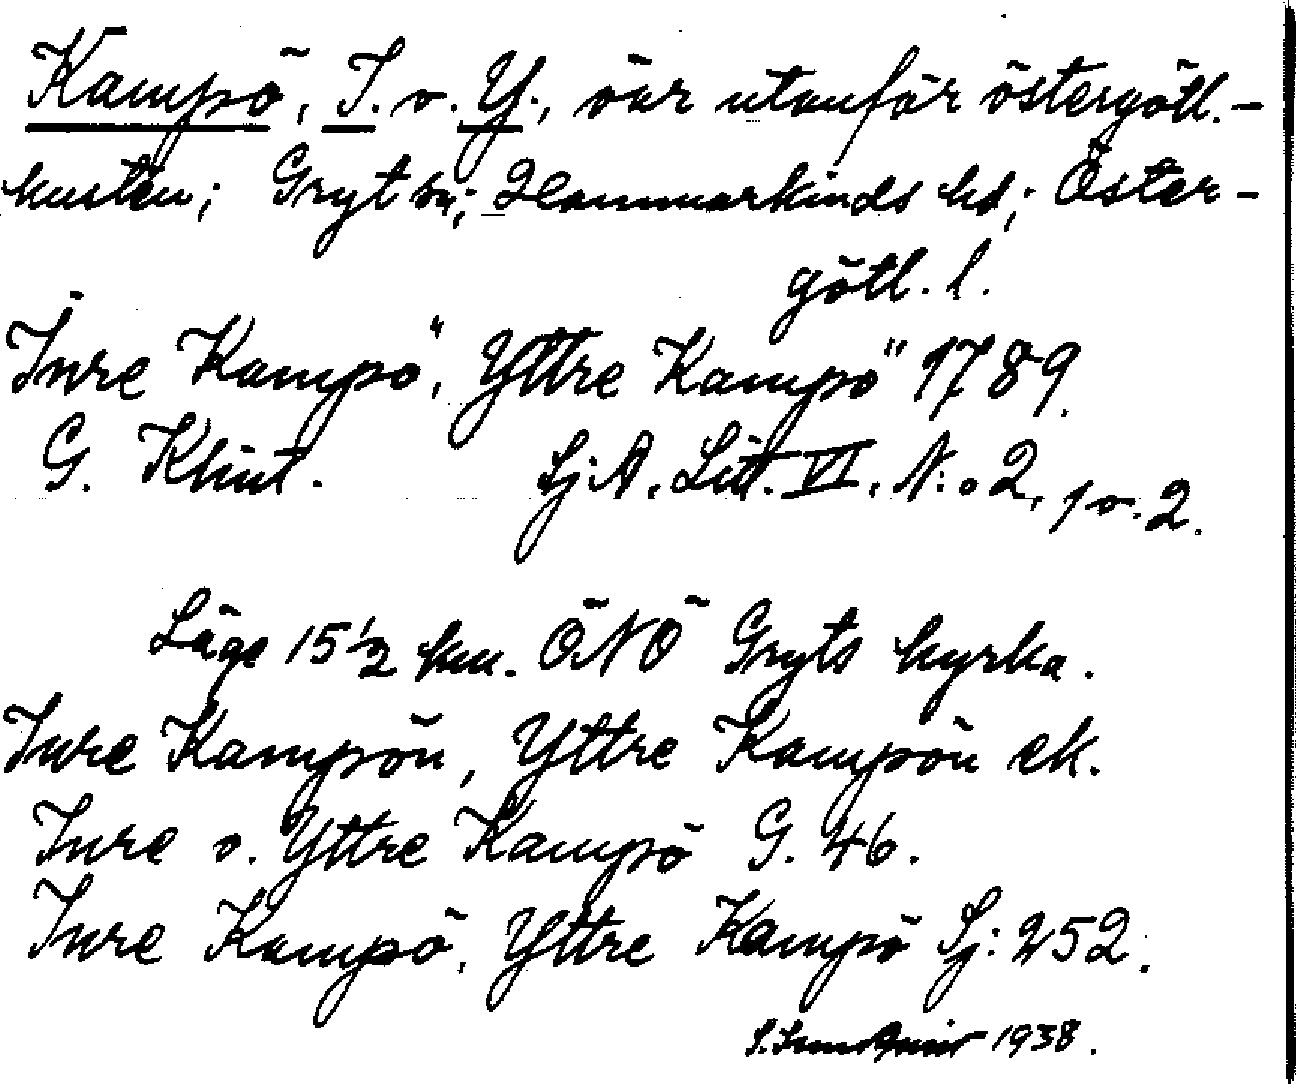 Kampö, I. o. Y., öar utanför östergötl.-
kusten; Gryt sn; Hammarkinds hd; Öster-
götl. l.
"Inre Kampö", Yttre Kampö" 1789.
G. Klint. Sj.A. Litt. VI. N:o 2, 1 o. 2.
Läge 15 1/2 km. ÖNÖ Gryts kyrka.
Inre Kampön, Yttre Kampön ek.
Inre o. Yttre Kampö G. 46.
Inre Kampö, Yttre Kampö Sj: 252.
1938.